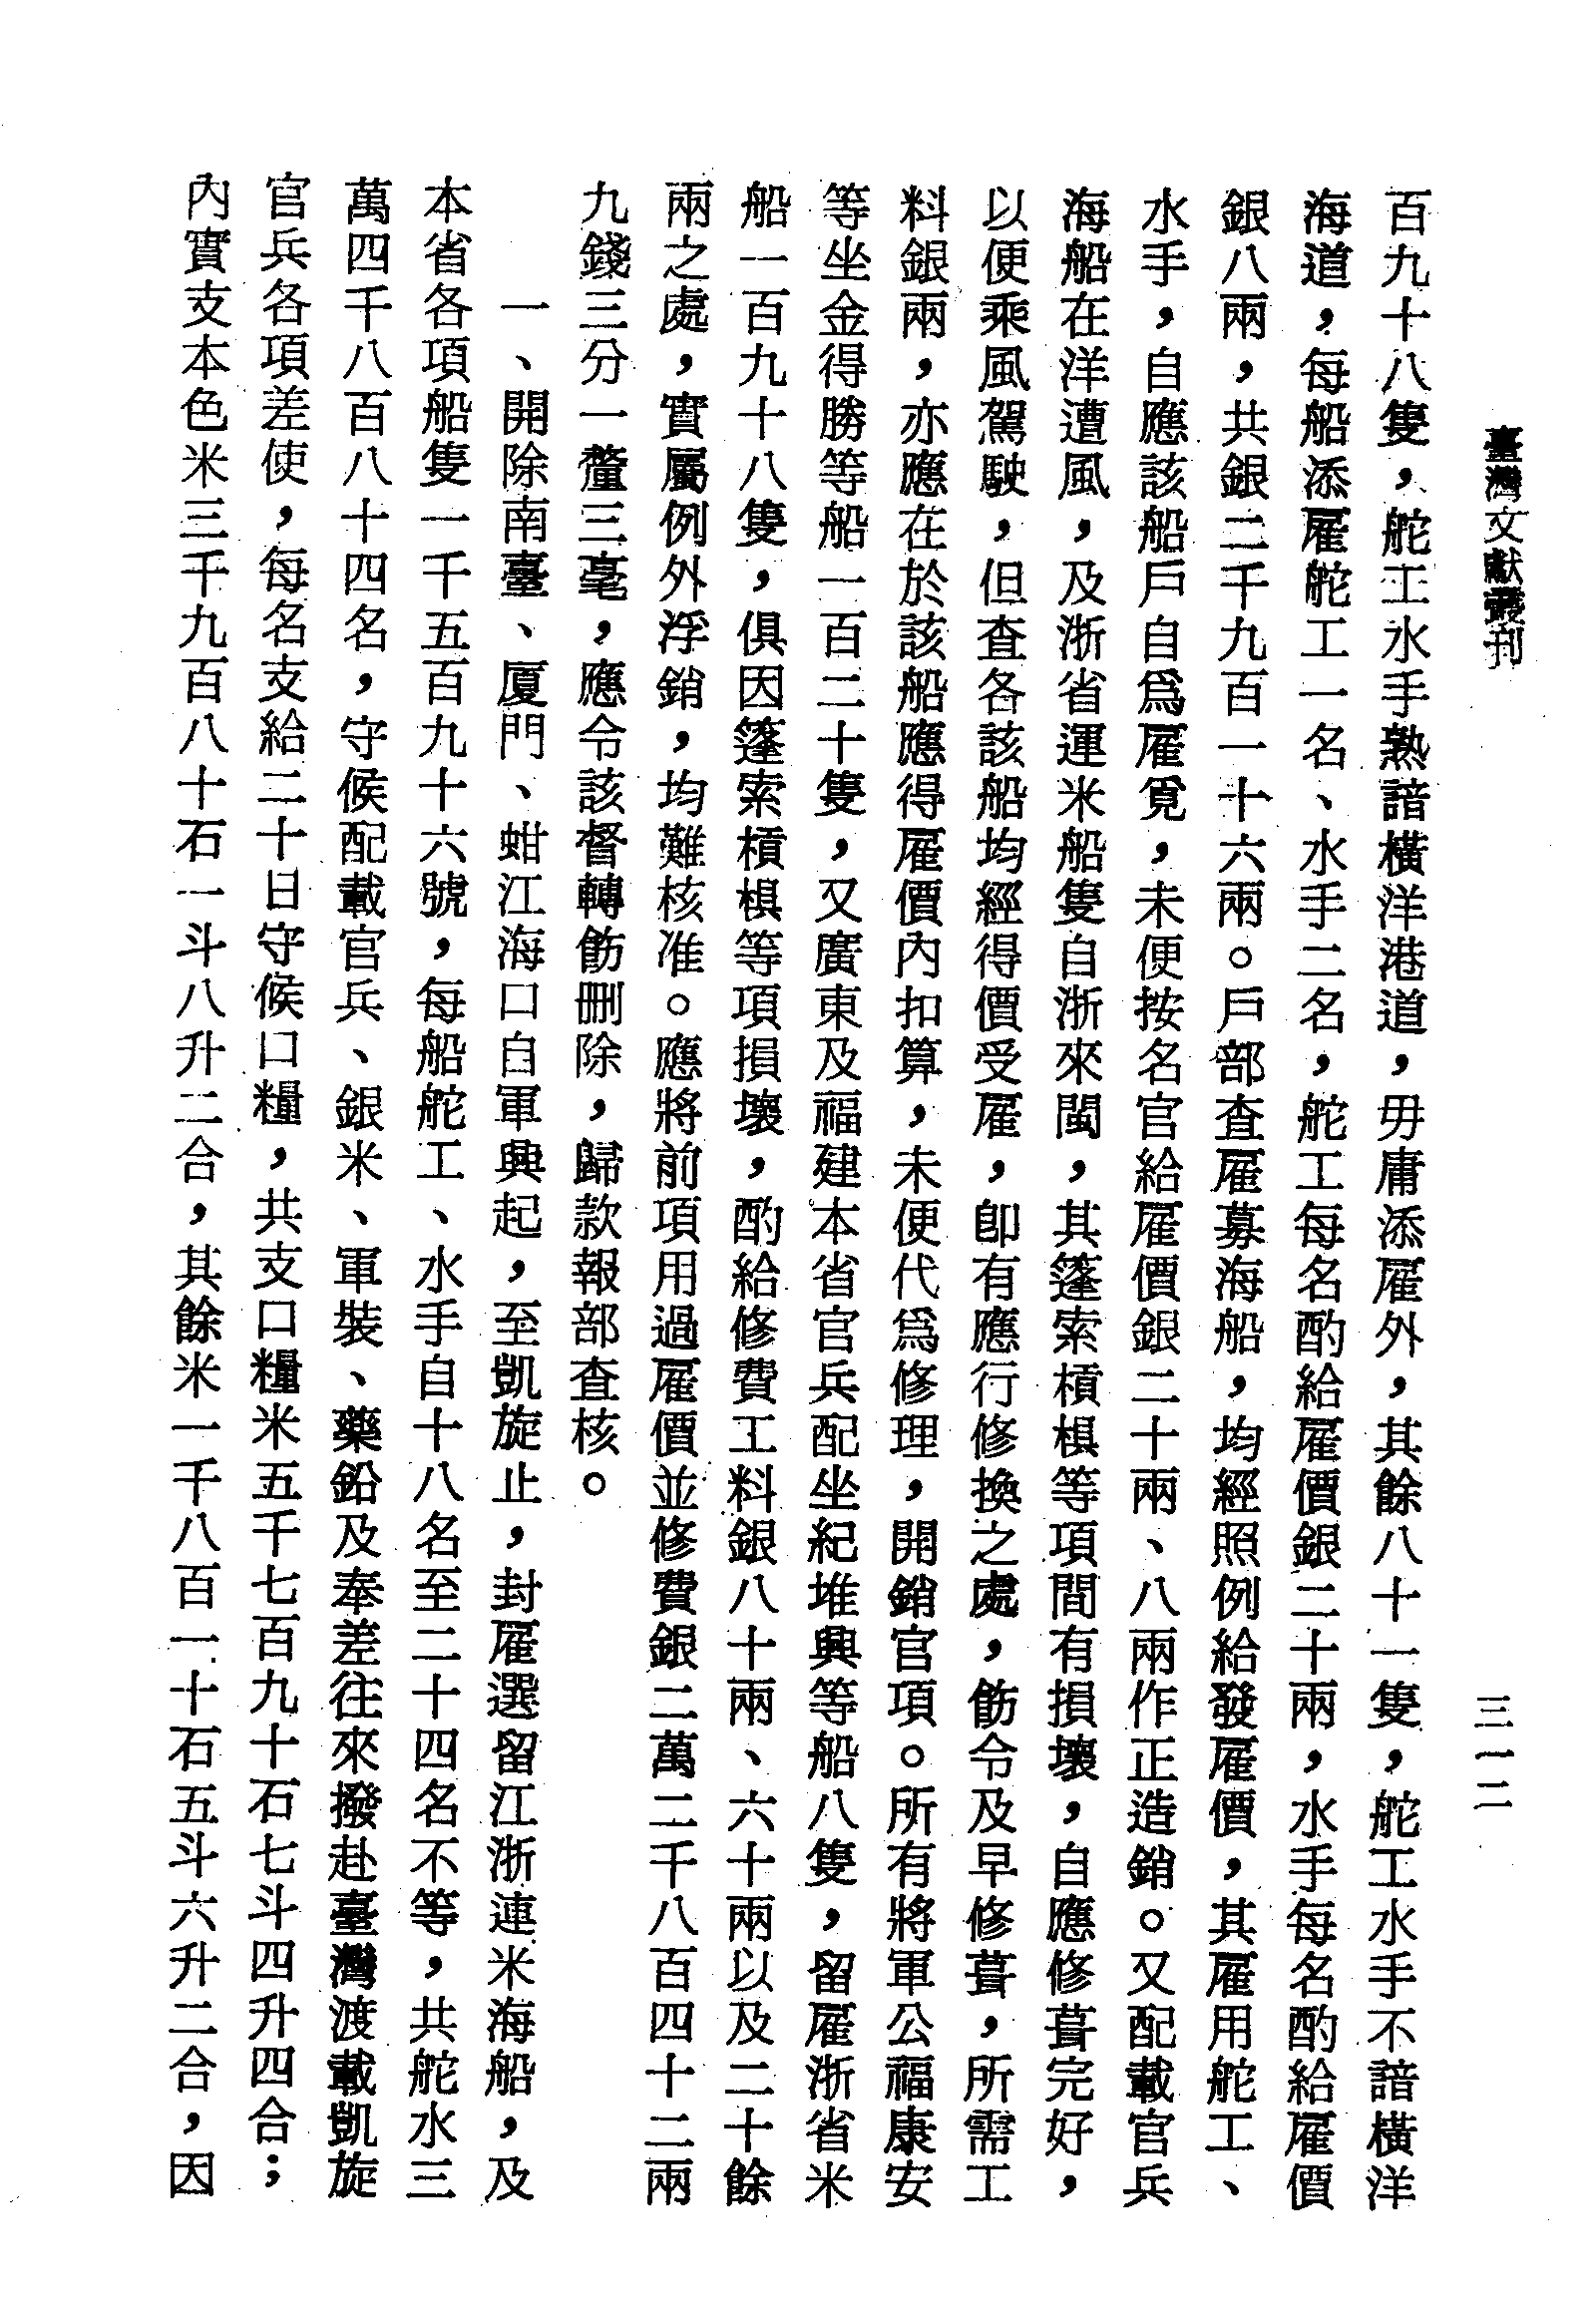 臺灣文獻叢刊
三一二
百九十八隻，舵工水手熟諳橫洋港道，毋庸添雇外，其餘八十一隻，舵工水手不諳橫洋
海道，每船添雇舵工一名、水手二名，舵工每名酌給雇價銀二十兩，水手每名酌給雇價
銀八兩，共銀二千九百一十六兩。戶部查雇募海船，均經照例給發雇價，其雇用舵工、
水手，自應該船戶自爲雇覓，未便按名官給雇價銀二十兩、八兩作正造銷。又配載官兵
海船在洋遭風，及浙省運米船隻自浙來閩，其篷索槓椇等項間有損壞，自應修葺完好，
以便乘風駕駛，但查各該船均經得價受雇，卽有應行修換之處，飭令及早修葺，所需工
料銀兩，亦應在於該船應得雇價內扣算，未便代爲修理，開銷官項。所有將軍公福康安
等坐金得勝等船一百二十隻，又廣東及福建本省官兵配坐紀堆興等船八隻，留雇浙省米
船一百九十八隻，俱因篷索槓椇等項損壞，酌給修費工料銀八十兩、六十兩以及二十餘
兩之處，實屬例外浮銷，均難核准。應將前項用過雇價並修費銀二萬二千八百四十二兩
九錢三分一釐三毫，應令該督轉飭刪除，歸款報部查核。
一、開除南臺、厦門、蚶江海口自軍興起，至凱旋止，封雇選留江浙連米海船，及
本省各項船隻一千五百九十六號，每船舵工、水手自十八名至二十四名不等，共舵水三
萬四千八百八十四名，守候配載官兵、銀米、軍裝、藥鉛及奉差往來撥赴臺灣渡載凱旋
官兵各項差使，每名支給二十日守候口糧，共支口糧米五千七百九十石七斗四升四合；
內實支本色米三千九百八十石一斗八升二合，其餘米一千八百一十石五斗六升二合，因